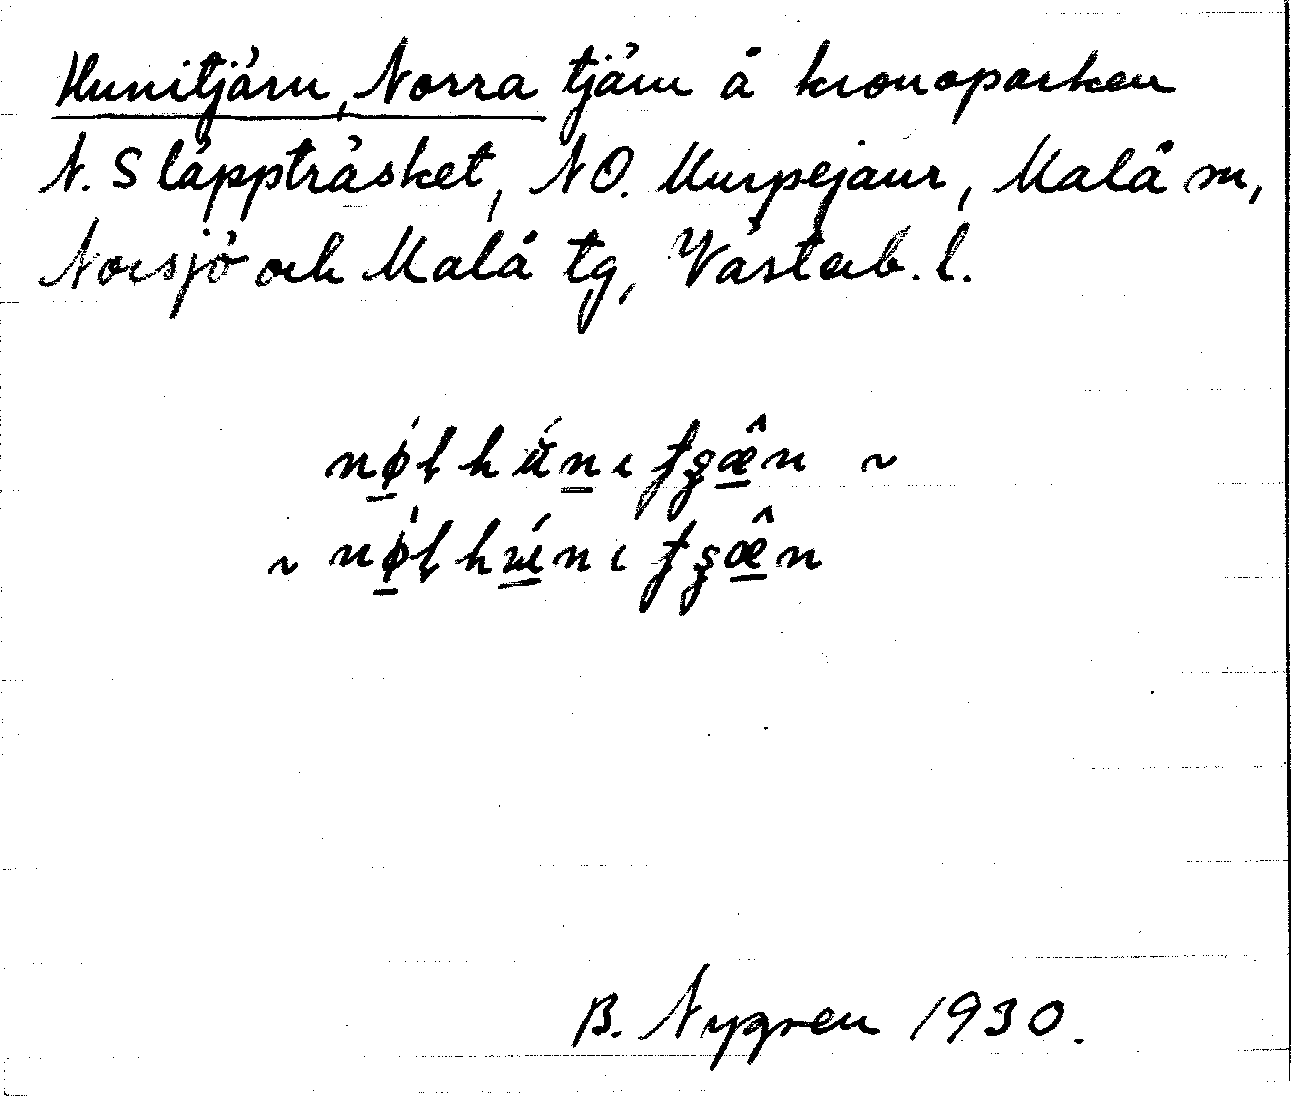 Hunitjärn, Norra tjärn å kronoparken
N. Släppträsket, NO. Murpejaur, Malå sn,
Norsjö och Malå tg, Västerb. l.
B. Nygren 1930.